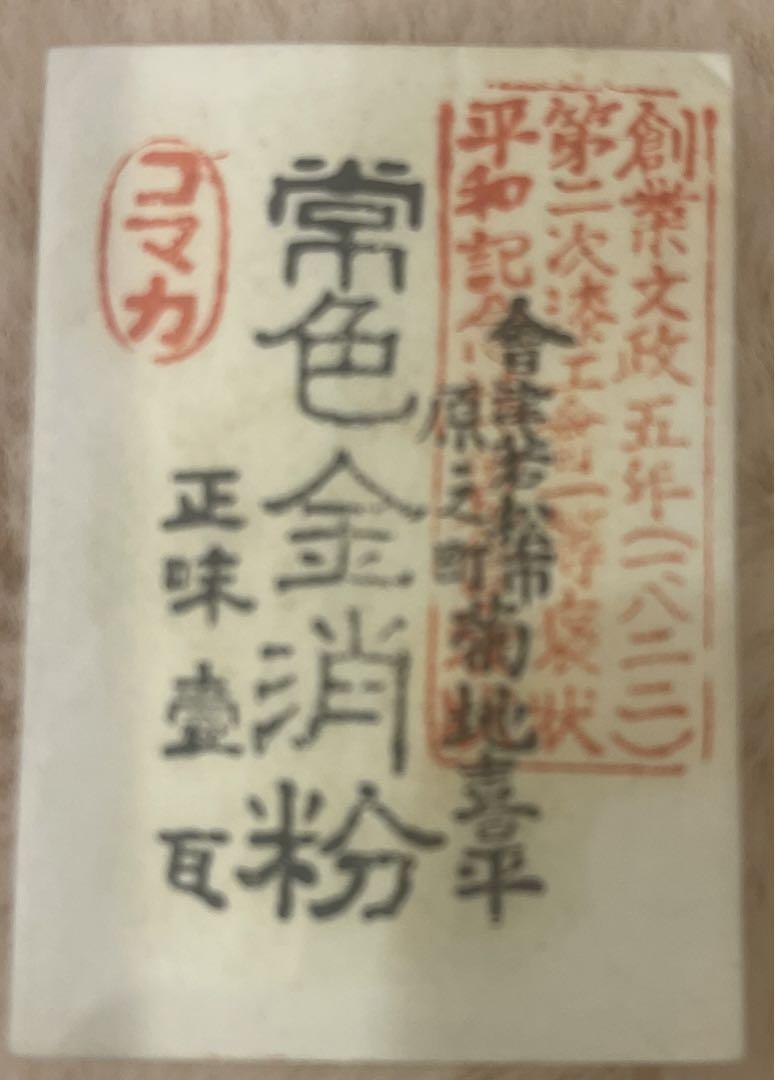 創業文政五年(一八二二)
第二次漆工 一等 状
平和記
會津若松市
原之町 菊地喜平
常色金消粉
正味壹瓦
コマカ